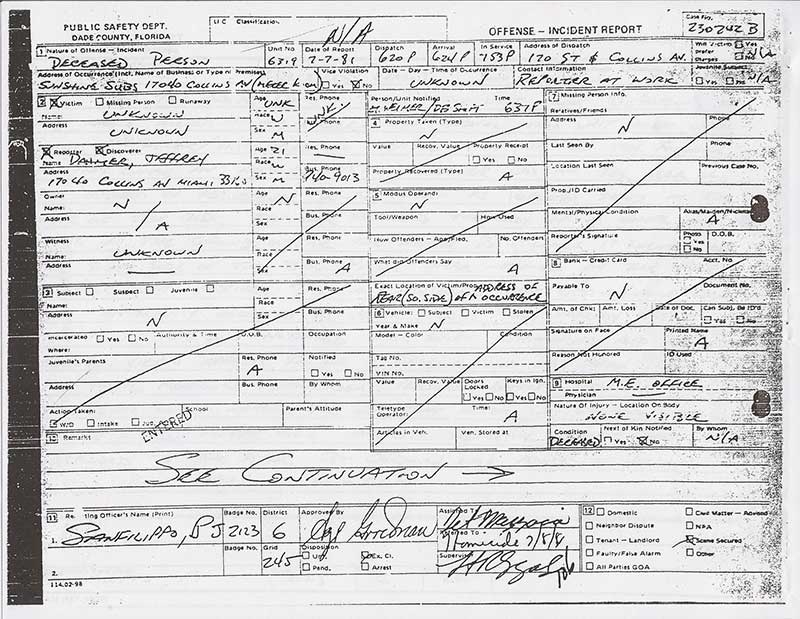 PUBLIC SAFETY DEPT.
DADE COUNTY, FLORIDA
Classification
N/A
OFFENSE – INCIDENT REPORT
Case No.
230242 B
1 Nature of Offense – Incident
DECEASED PERSON
Unit No
6319
Date of Report
7-7-81
Dispatch
620P
Arrival
624P
In Service
753P
Address of Dispatch
170 ST & COLLINS AV.
Yes
No
N/A
Address of Occurrence (Incl. Name of Business or Type of Premises)
SUNSHINE SUBS 17040 COLLINS AV
Vice Violation
Yes No
Date – Day – Time of Occurrence
UNKNOWN
Contact Information
REPORTER AT WORK
N/A
2 Victim Missing Person Runaway
Name:
UNKNOWN
Address
UNKNOWN
Age
UNK
Race
W
Sex
M
Res. Phone
UNK
Bus. Phone
Person/Unit Notified
Time
637P
Reporter Discoverer
Name
DAHMER, JEFFREY
Address
17040 COLLINS AV MIAMI
Age 21
Race W
Sex M
Res. Phone
Bus. Phone
940-9013
Owner
Name:
N/A
Address
Age
N
Race
Sex
Res. Phone
Bus. Phone
A
Witness
Name:
UNKNOWN
Address
Age
Race
Sex
Res. Phone
Bus. Phone
A
3 Subject Suspect Juvenile
Name:
N
Address
Age
Race
Sex
Res. Phone
Bus. Phone
Incarcerated Yes No
Authority & Time
D.O.B.
Occupation
Where:
Juvenile's Parents
Res. Phone
A
Notified
Yes No
Address
Bus. Phone
By Whom
Action Taken:
W/O Intake
School
Parent's Attitude
ENTERED
10 Remarks
4 Property Taken (Type)
N
Recov. Value
Property Receipt
Yes No
Property Recovered (Type)
A
5 Modus Operandi
N
Tool/Weapon
How Used
How Offenders – App/Fled.
No. Offenders
What did Offenders Say
A
Exact Location of Victim/Property
REAR (SO. SIDE) OF ADDRESS OF OCCURRENCE
6 Vehicle: Subject Victim Stolen
Year & Make
N
Model – Color
Condition
Tag No.
VIN No.
Value
Recov. Value
Doors Locked
Yes No
Keys in Ign.
Yes No
Teletype Operator:
Time:
A
Articles in Veh.
Veh. Stored at
7 Missing Person Info.
Relatives/Friends
Address
N
Phone
Last Seen By
Phone
Location Last Seen
Previous Case No.
Prop./ID Carried
Mental/Physical Condition
Alias/Maiden/Nickname
A
Reporter's Signature
Photo
Yes
No
D.O.B.
8 Bank – Credit Card
Acct. No.
Payable To
N
Document No.
Amt. of Chk:
Amt. Loss
Date of Doc.
Can Subj. Be ID'd
Yes No
Signature on Face
Printed Name
A
Reason Not Honored
ID Used
9 Hospital
M.E. OFFICE
Physician
Nature Of Injury – Location On Body
NONE VISIBLE
Condition
DECEASED
Next of Kin Notified
Yes No
By Whom
N/A
SEE CONTINUATION →
11 Reporting Officer's Name (Print)
1. SANFILIPPO, P J
Badge No.
2123
District
6
Approved By
Assigned To
Referred To
Homicide 7/8/81
2.
Badge No.
Grid
245
Disposition
Unf.
Ex. Cl.
Pend.
Arrest
Supervisor
12 Domestic
Civil Matter – Advised
Neighbor Dispute
NPA
Tenant – Landlord
Scene Secured
Faulty/False Alarm
Other
All Parties GOA
114.02-98